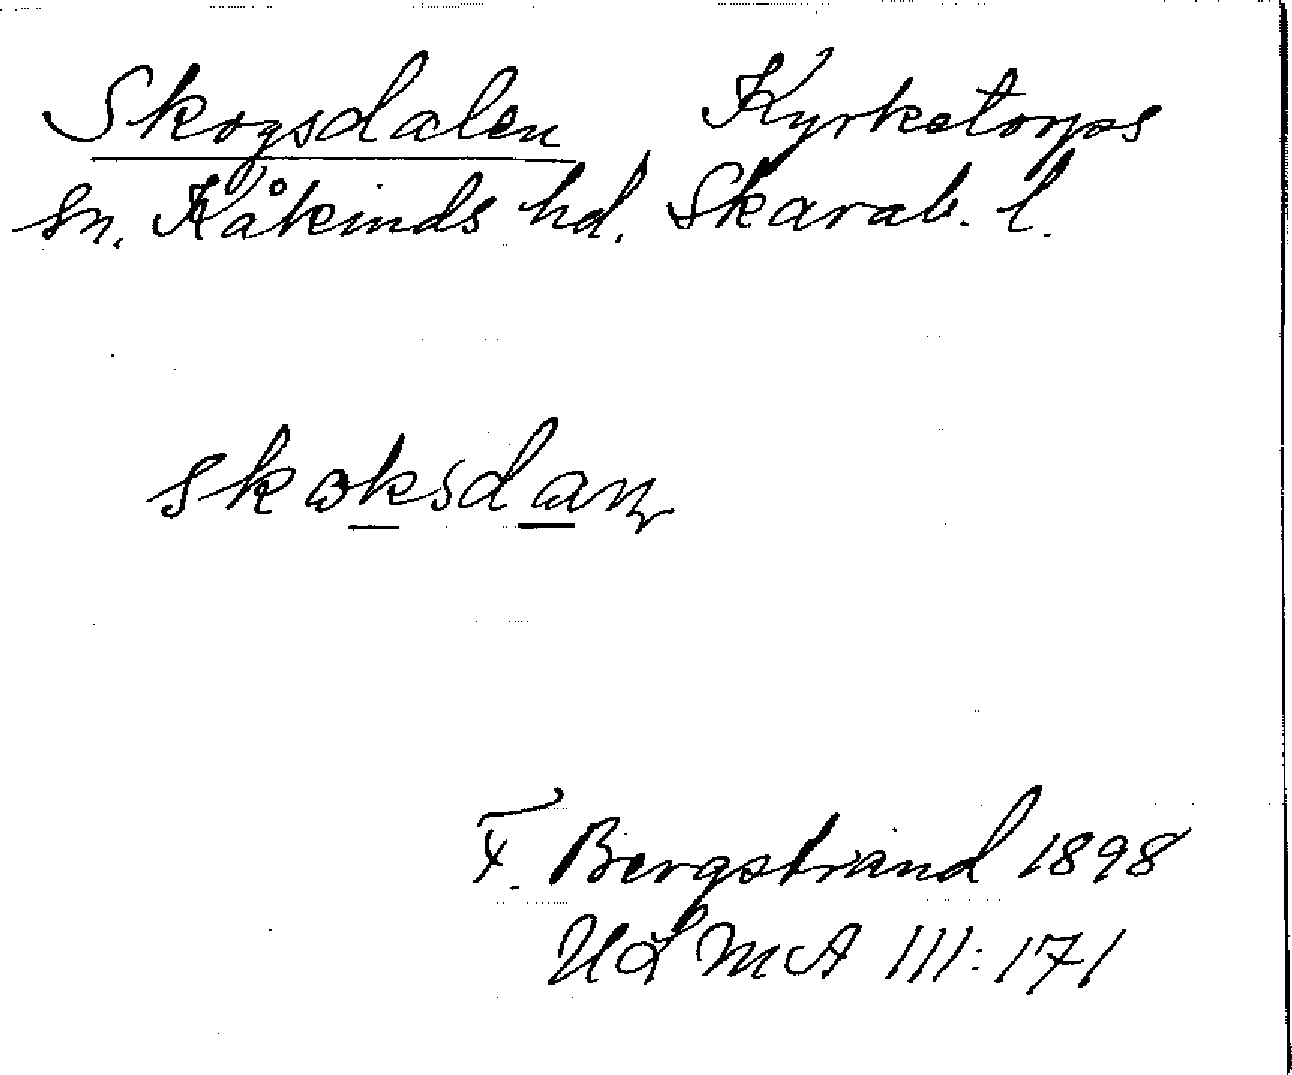 Skogsdalen Kyrketorps
sn. Kåkinds hd. Skarab. l.
skoksdaɳ
F. Bergstrand 1898
ULMA III:171